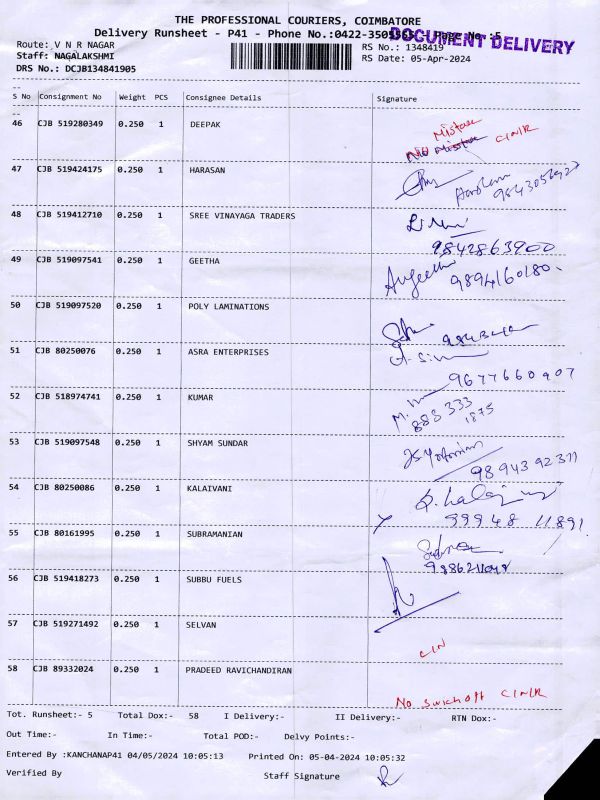 THE PROFESSIONAL COURIERS, COIMBATORE
Delivery Runsheet - P41 - Phone No.:0422-3505565 Page No.:5
DOCUMENT DELIVERY
Route: V N R NAGAR RS No.: 1348419
Staff: NAGALAKSHMI RS Date: 05-Apr-2024
DRS No.: DCJB134841905
S No Consignment No Weight PCS Consignee Details Signature
46 CJB 519280349 0.250 1 DEEPAK
Mistake
C/N/R
47 CJB 519424175 0.250 1 HARASAN
48 CJB 519412710 0.250 1 SREE VINAYAGA TRADERS
9842863900
49 CJB 519097541 0.250 1 GEETHA
9894160180
50 CJB 519097520 0.250 1 POLY LAMINATIONS
51 CJB 80250076 0.250 1 ASRA ENTERPRISES
9677660907
52 CJB 518974741 0.250 1 KUMAR
883 333
1875
53 CJB 519097548 0.250 1 SHYAM SUNDAR
98943 92311
54 CJB 80250086 0.250 1 KALAIVANI
99948 11891
55 CJB 80161995 0.250 1 SUBRAMANIAN
56 CJB 519418273 0.250 1 SUBBU FUELS
57 CJB 519271492 0.250 1 SELVAN
C/N
58 CJB 89332024 0.250 1 PRADEED RAVICHANDIRAN
No Swich off C/N/R
Tot. Runsheet:- 5 Total Dox:- 58 I Delivery:- II Delivery:- RTN Dox:-
Out Time:- In Time:- Total POD:- Delvy Points:-
Entered By :KANCHANAP41 04/05/2024 10:05:13 Printed On: 05-04-2024 10:05:32
Verified By Staff Signature